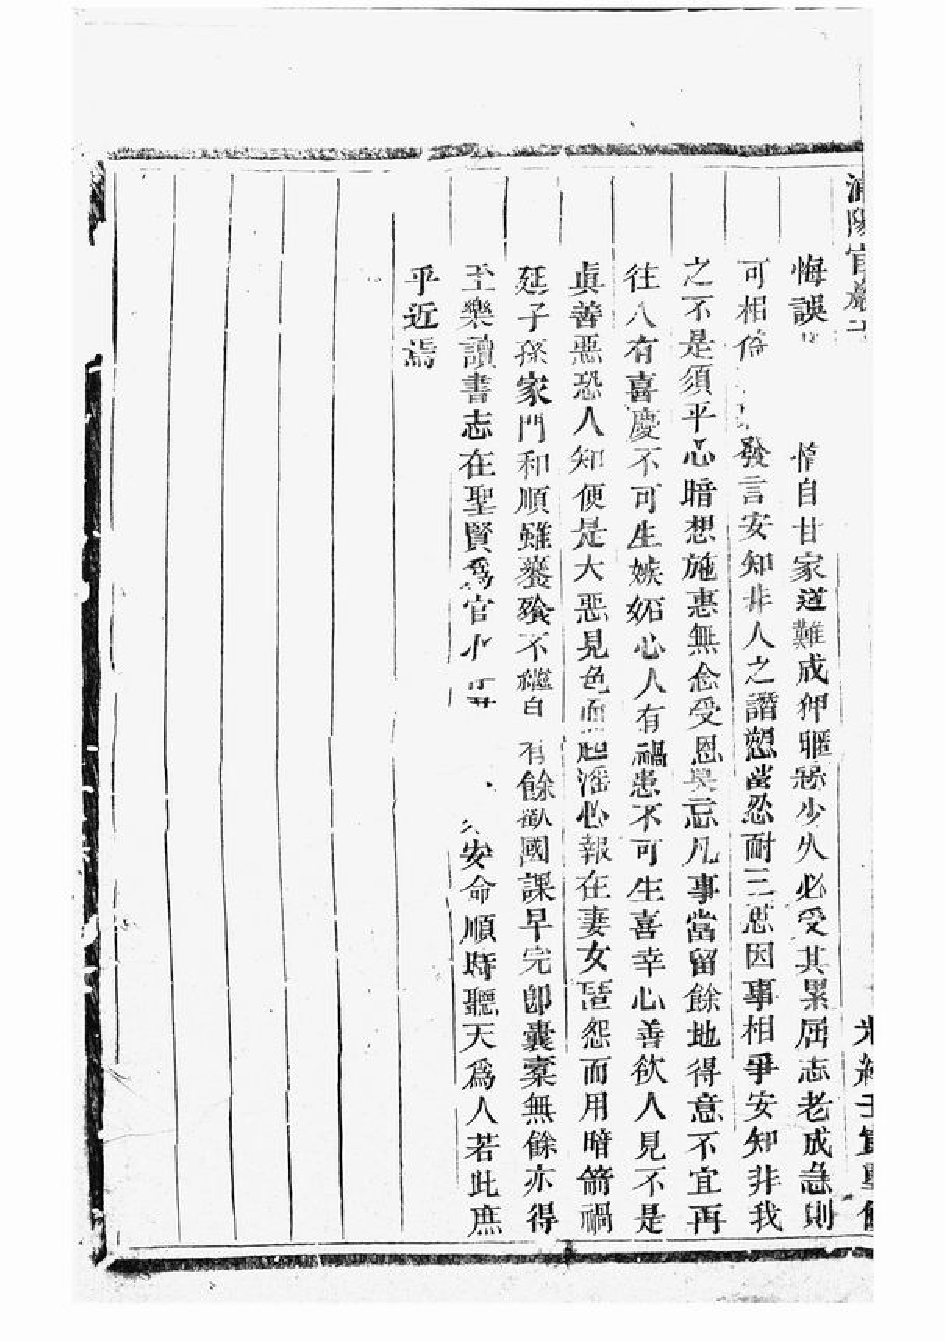 浦陽官
光緒壬寅重修
悔誤 惰自甘家道難成狎暱惡少久必受其累屈志老成急則
可相倚 發言安知非人之譖愬當忍耐三思因事相爭安知非我
之不是須平心暗想施惠無念受恩莫忘凡事當留餘地得意不宜再
往人有喜慶不可生嫉妬心人有禍患不可生喜幸心善欲人見不是
眞善惡恐人知便是大惡見色而起淫心報在妻女匿怨而用暗箭禍
延子孫家門和順雖饔飱不繼自有餘歡國課早完卽囊橐無餘亦得
至樂讀書志在聖賢爲官心存 安命順時聽天爲人若此庶
乎近焉